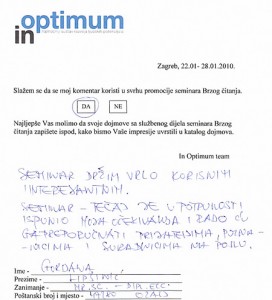 in optimum
Zagreb, 22.01- 28.01.2010.
Slažem se da se moj komentar koristi u svrhu promocije seminara Brzog čitanja.
DA NE
Najljepše Vas molimo da svoje dojmove sa službenog dijela seminara Brzog
čitanja zapišete ispod, kako bismo Vaše impresije uvrstili u katalog dojmova.
In Optimum team
SEMINAR DRŽIM VRLO KORISNIM I
INTERESANTNIM.
SEMINAR - TEČAJ JE U POTPUNOSTI
ISPUNIO MOJA OČEKIVANJA I RADO ĆU
GA PREPORUČITI PRIJATELJIMA,
I SURADNICIMA NA POSLU.
Ime - GORDANA
Prezime -
Zanimanje - MR.SC. - DIPL.OEC.
Poštanski broj i mjesto - OZALJ